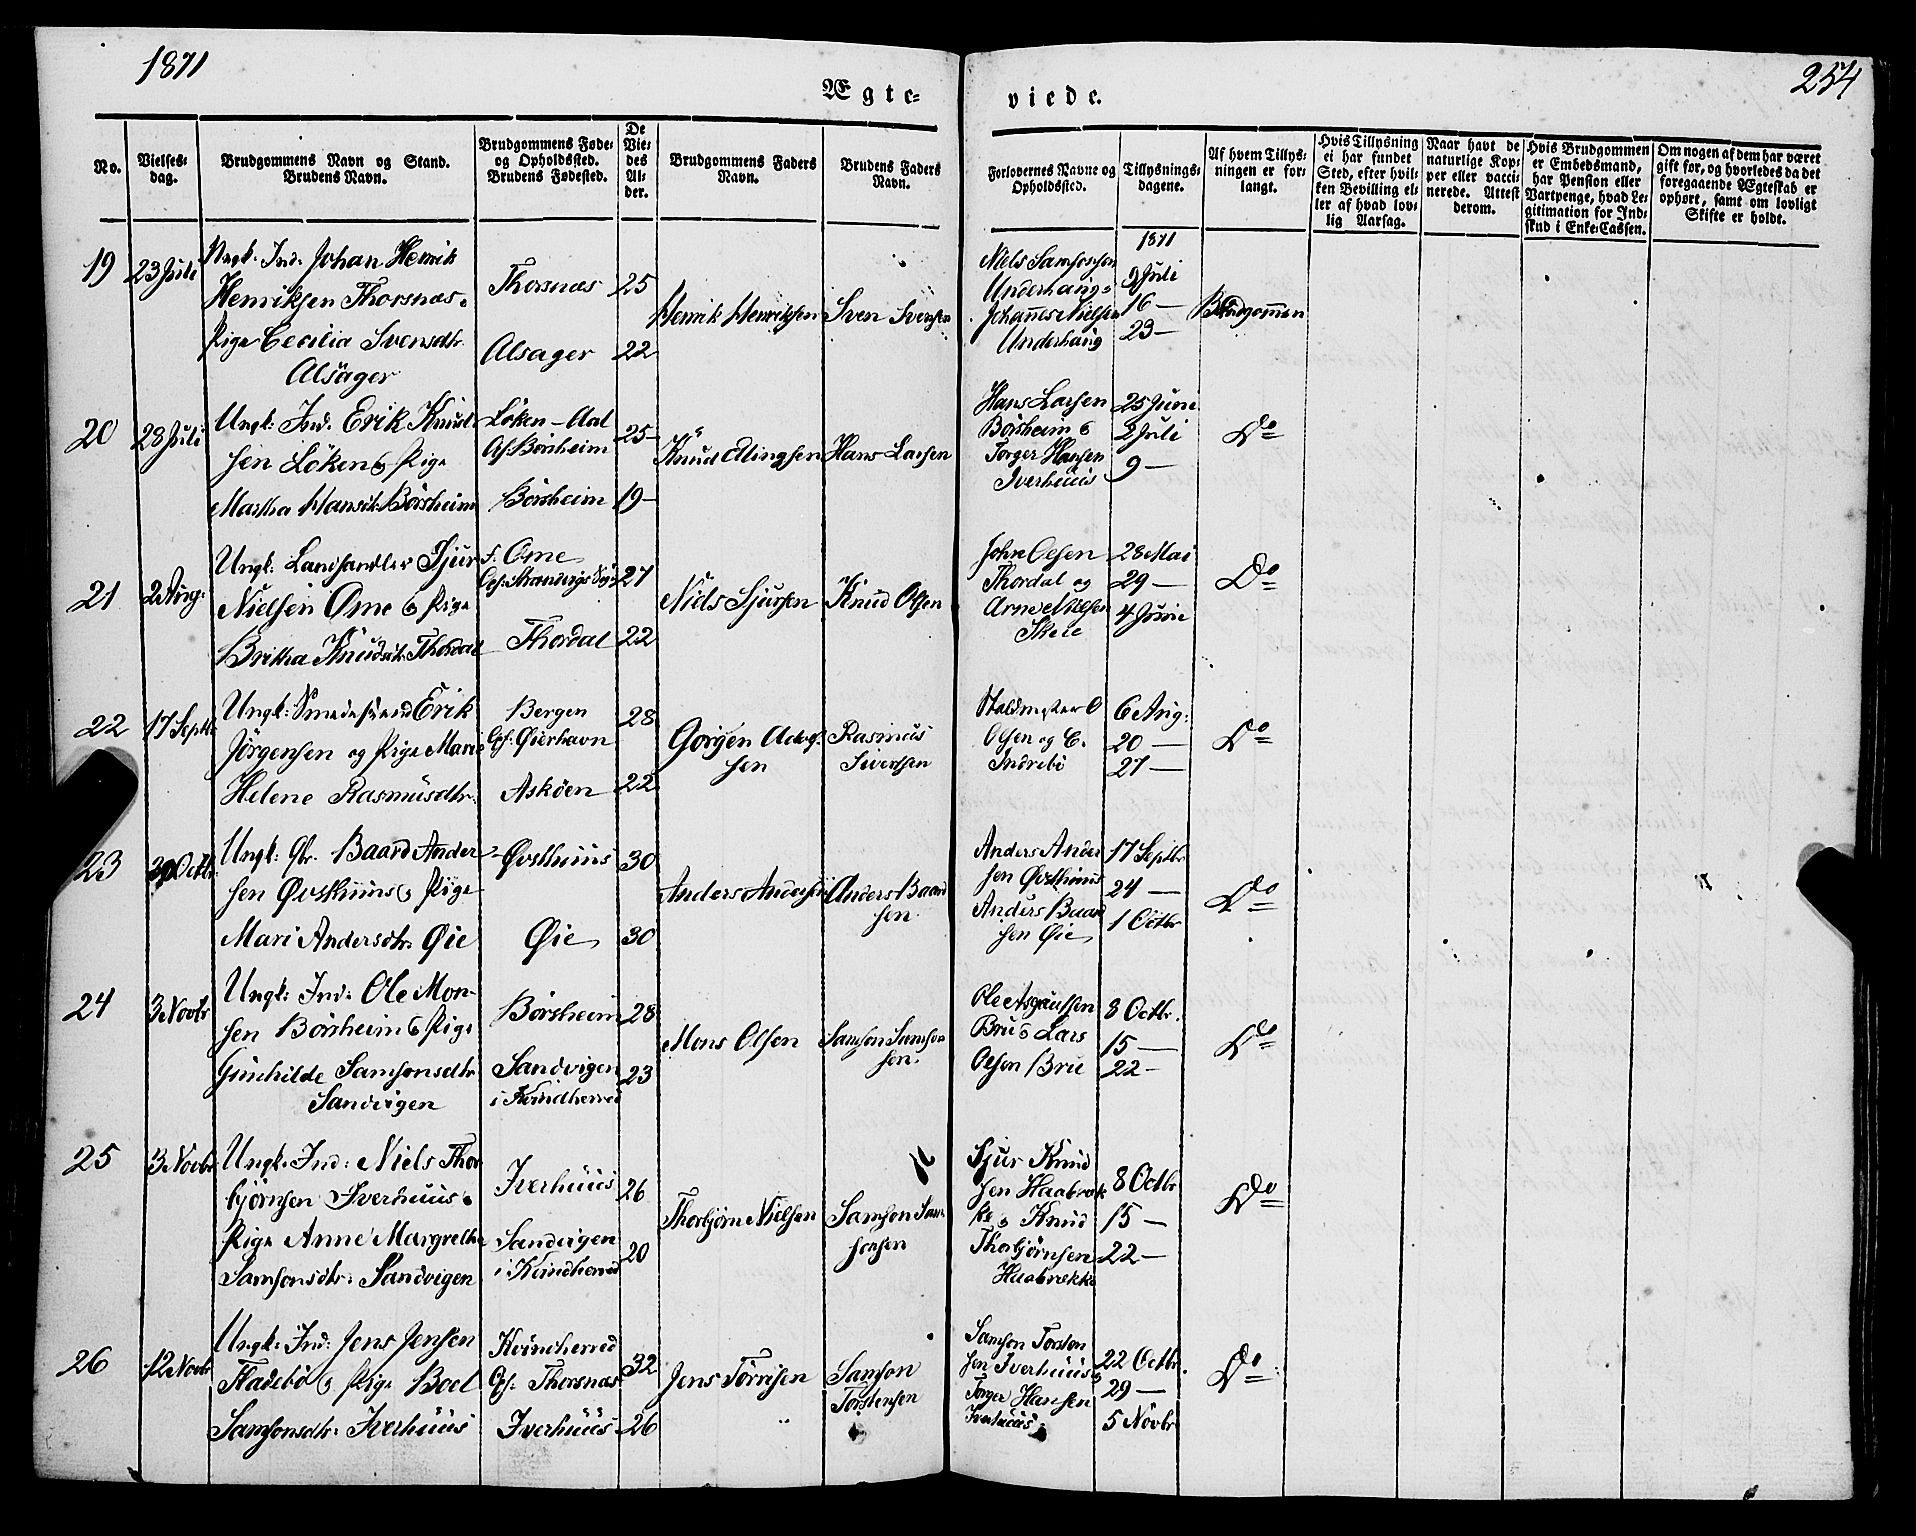 1871
254
Ægte=
viede.
No.
Vielses-
dag.
Brudgommens Navn og Stand.
Brudens Navn.
Brudgommens Føde-
og Opholdssted.
Brudens Fødested.
De
Vie-
des
Al-
der.
Brudgommens Faders
Navn.
Brudens Faders
Navn.
Forlovernes Navne og
Opholdssted.
Tillysnings-
dagene.
Af hvem Tillys-
ningen er for-
langt.
Hvis Tillysning
ei har fundet
Sted, efter hvil-
ken Bevilling el-
ler af hvad lov-
lig Aarsag.
Naar havt de
naturlige Kop-
per eller vacci-
nerede. Attest
derom.
Hvis Brudgommen
er Embedsmand,
har Pension eller
Vartpenge, hvad Le-
gitimation for Ind-
skud i Enke-Cassen.
Om nogen af dem har været
gift før, og hvorledes da det
foregaaende Ægteskab er
ophørt, samt om lovligt
Skifte er holdt.
19
23 Juli
Ungk: Ind: Johan Henrik
Henriksen Thorsnæs o
Pige Cecilia Svensdtr.
Alsager
Thorsnæs
Alsager
25
22
Henrik Henriksen
Sven Svensen
Niels Samsonsen
Underhaug o
Johannes Nielsen
Underhaug
1871
9 Juli
16 —
23 —
Brudgommen
20
28 Juli
Ungk: Ind. Erik Knud-
sen Løken o Pige
Martha Hansdt. Børsheim
Løken - Aal
Of. Børsheim
Børsheim
25
19
Knud
Hans Larsen
Hans Larsen
Børsheim o
Torger Hansen
Iverhuus
25 Juni
2 Juli
9 —
Do
21
2 Aug:
Ungk: Landhandler Sjur
Nielsen Ome o Pige
Britha Knudsdt. Thordal
F. Ome
Thordal
27
22
Niels Sjursen
Knud Olsen
John Olsen
Thordal og
Arne Nielsen
Skeie
28 Mai
29 —
4 Juni
Do
22
17 Septb
Ungk: Smedesvend Erik
Jörgensen og Pige Marie
Helene Rasmusdtr.
Bergen
Of: Øierhavn
Askøen
28
22
Rasmus
Sivertsen
Staldmester O
Olsen og C.
Indrebö
6 Aug:
20 —
27 —
Do
23
Octbr.
Ungk: Gbr. Baard Ander
sen Øvsthuus o Pige
Mari Andersdtr. Øie
Øvsthuus
Øie
30
30
Anders Andersen
Anders Baard
sen
Anders Ander
sen Øvsthuus
Anders Baard
sen Øie
17 Septbr
24 —
1 Octbr
Do
24
3 Novbr
Ungk: Ind: Ole Mon-
sen Børsheim o Pige
Gunhilde Samsonsdtr
Sandvigen
Børsheim
Sandvigen
i Kvindherred
28
23
Mons Olsen
Samson Samson
sen.
Ole Asgautsen
Bru o Lars
Olson Bru
8 Octbr.
15 —
22 —
Do
25
3 Novbr
Ungk. Ind: Niels Thor
björnsen Iverhuus o
Pige Anne Margrethe
Samsonsdtr: Sandvigen
Iverhuus
Sandvigen
i Kvindherred
26
20
Thorbjörn Nielsen
Samson Sam-
sonsen
Sjur Knud
sen Haabrek
ke o Knud
Thorbjørnsen
Haabrekke
8 Octbr
15 —
22 —
Do
26
12 Novbr
Ungk: Ind: Jens Jensen
Fladebö o Pige Boel
Samsonsdtr: Iverhuus
Kvindherred
Of. Thorsnæs
Iverhuus
32
26
Jens Tørrisen
Samson
Torstensen
Samson Torsten
sen Iverhuus o
Torger Hansen
Iverhuus
22 Octbr.
29 —
5 Novbr
Do